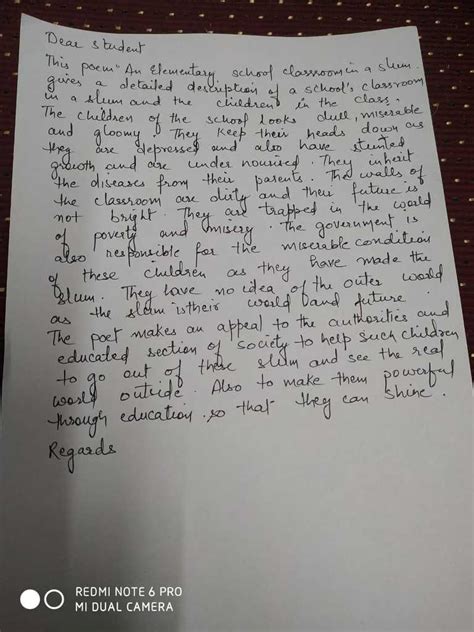 Dear student
This poem "An Elementary school classroom in a slum
gives a detailed description of a school's classroom
in a slum and the children in the class.
The children of the school looks dull, miserable
and gloomy. They keep their heads down as
they are depressed and also have stunted
growth and are under nourised. They inherit
the diseases from their parents. The walls of
the classroom are dirty and their future is
not bright. They are trapped in the world
of poverty and misery. The government is
also responsible for the miserable condition
of these children as they have made the
slum. They have no idea of the outer world
as the slum is their world and future
The poet makes an appeal to the authorities and
educated section of society to help such children
to go out of these slum and see the real
world outside. Also to make them powerful
through education so that they can shine.
Regards
REDMI NOTE 6 PRO
MI DUAL CAMERA